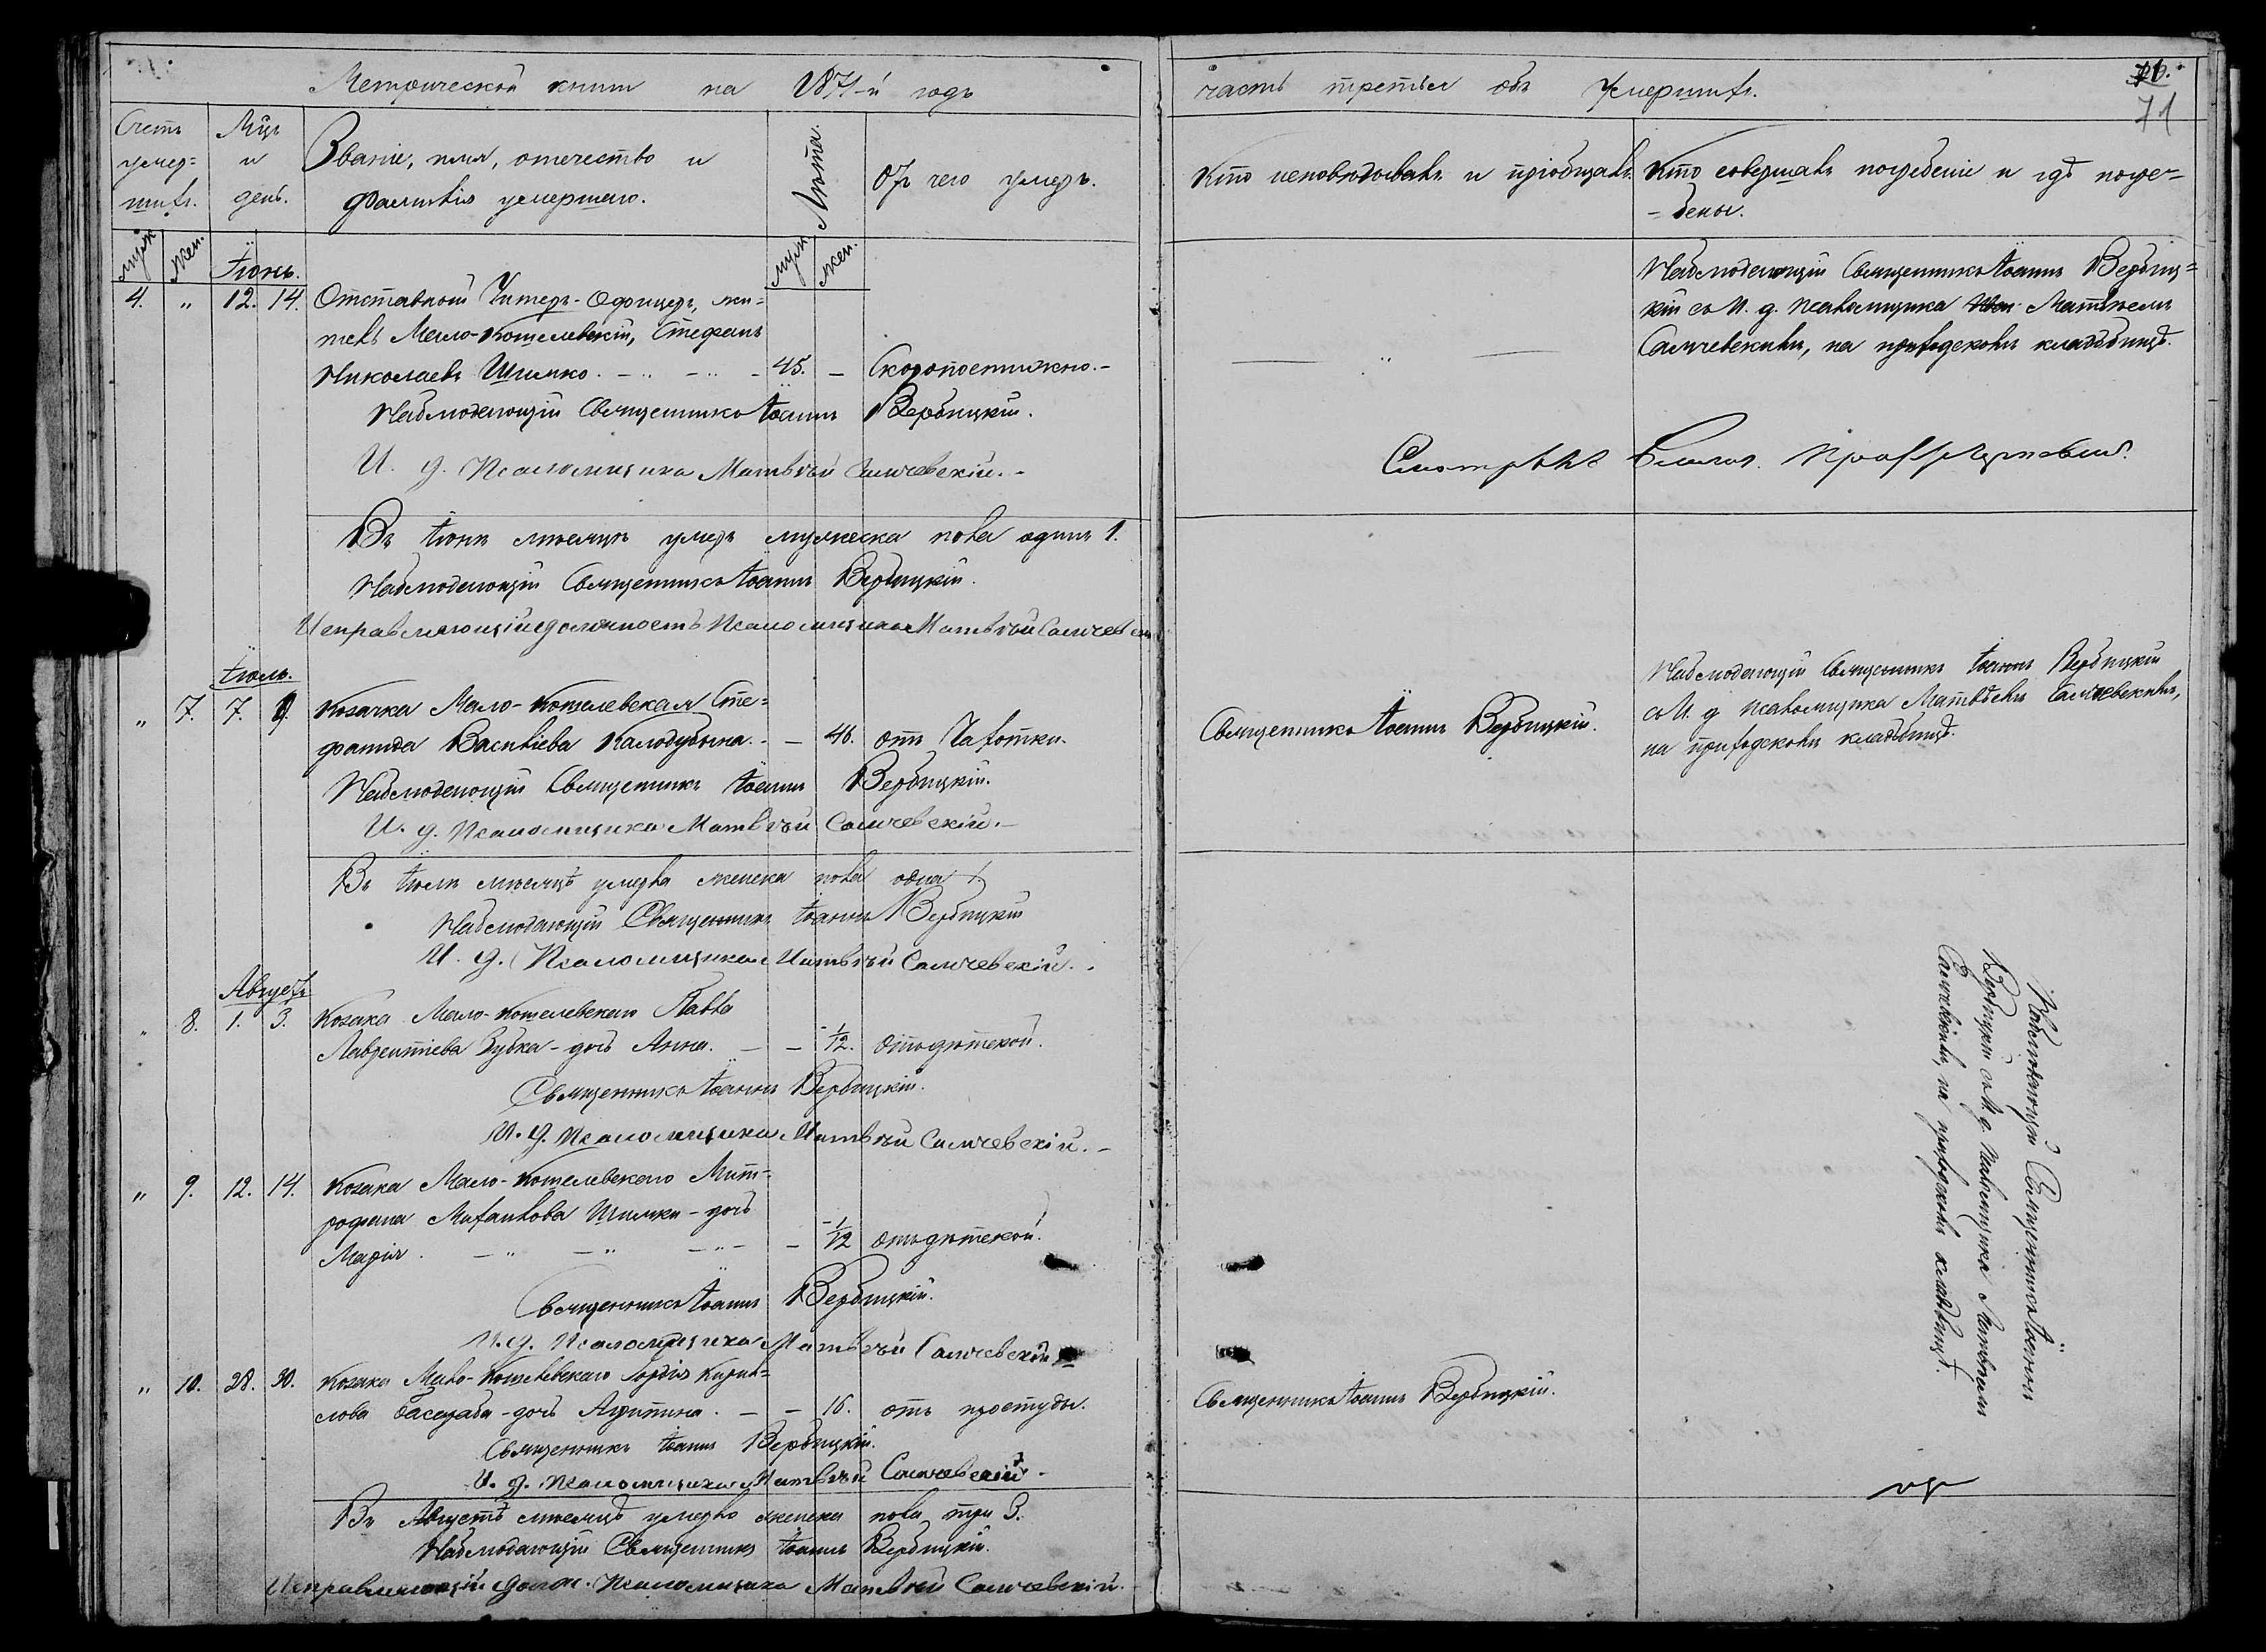 Метрической книги на 1871-й годъ
Счетъ умер=шихъ. Мцъ и день. Званіе, имя, отечество и фамилія умершаго. Лѣта. Отъ чего умеръ.
муж. жен. Іюнь. муж. жен.
4. " 12. 14. Отставной Унтеръ-Офицеръ, жи=
тель Мало-Кошелевскій, Стефанъ
Николаевъ Шимко. - " - " - 45. - Скоропостижно.-
Наблюдающій Священникъ Іоаннъ Вербицкій.
И. д. Псаломщика Матвѣй Самчевскій.-
Въ Іюнѣ мѣсяцѣ умеръ мужеска пола одинъ 1.
Наблюдающій Священникъ Іоаннъ Вербицкій.
Исправляющій должность Псаломщика Матвѣй Самчевскій
Іюль.
" 7. 7. 9. Козачка Мало-Кошелевская Сте=
фанида Василіева Калодубына. - - 46. отъ Чахотки.
Наблюдающій Священникъ Іоаннъ Вербицкій.
И. д. Псаломщика Матвѣй Самчевскій.-
Въ Іюлѣ мѣсяцѣ умерла женска пола одна 1.
Наблюдающій Священникъ Іоаннъ Вербицкій
И. д. Псаломщика Матвѣй Самчевскій.
Августъ
" 8. 1. 3. Козака Мало-Кошелевскаго Павла
Лаврентіева Зубка - дочь Анна. - - 1/12. отъ дѣтской.
Священникъ Іоаннъ Вербицкій.
И. д. Псаломщика Матвѣй Самчевскій.-
" 9. 12. 14. Козака Мало-Кошелевскаго Мит=
рофана Михаилова Шимки - дочь
Марія. - " - " - " - - 1/12 отъ дѣтской.
Священникъ Іоаннъ Вербицкій.
И. д. Псаломщика Матвѣй Самчевскій
" 10. 28. 30. Козака Мало-Кошелевскаго Гордія Кирил=
лова Басараба - дочь Агрипина. - - 16. отъ простуды.
Священникъ Іоаннъ Вербицкій.
И. д. Псаломщика Матвѣй Самчевскій -
Въ Августѣ мѣсяцѣ умерло женска пола три 3.
Наблюдающій Священникъ Іоаннъ Вербицкій.
Исправляющій долж. Псаломщика Матвѣй Самчевскій.
часть третья объ умершихъ.
71
Кто исповѣдывалъ и пріобщалъ. Кто совершалъ погребеніе и гдѣ погре=
-бены.
Наблюдающій Священникъ Іоаннъ Вербиц=
кій съ И. д. Псаломщика Матвѣемъ
Самчевскимъ, на приходскомъ кладбищѣ.
Смотрѣлъ
Наблюдающій Священникъ Іоаннъ Вербицкій
съ И. д Псаломщика Матвѣемъ Самчевскимъ,
на приходскомъ кладбищѣ.
Священникъ Іоаннъ Вербицкій.
Наблюдающій Священникъ Іоаннъ
Вербицкій съ И. д. Псаломщика Матвѣемъ
Самчевскимъ, на приходскомъ кладбищѣ.
Священникъ Іоаннъ Вербицкій.